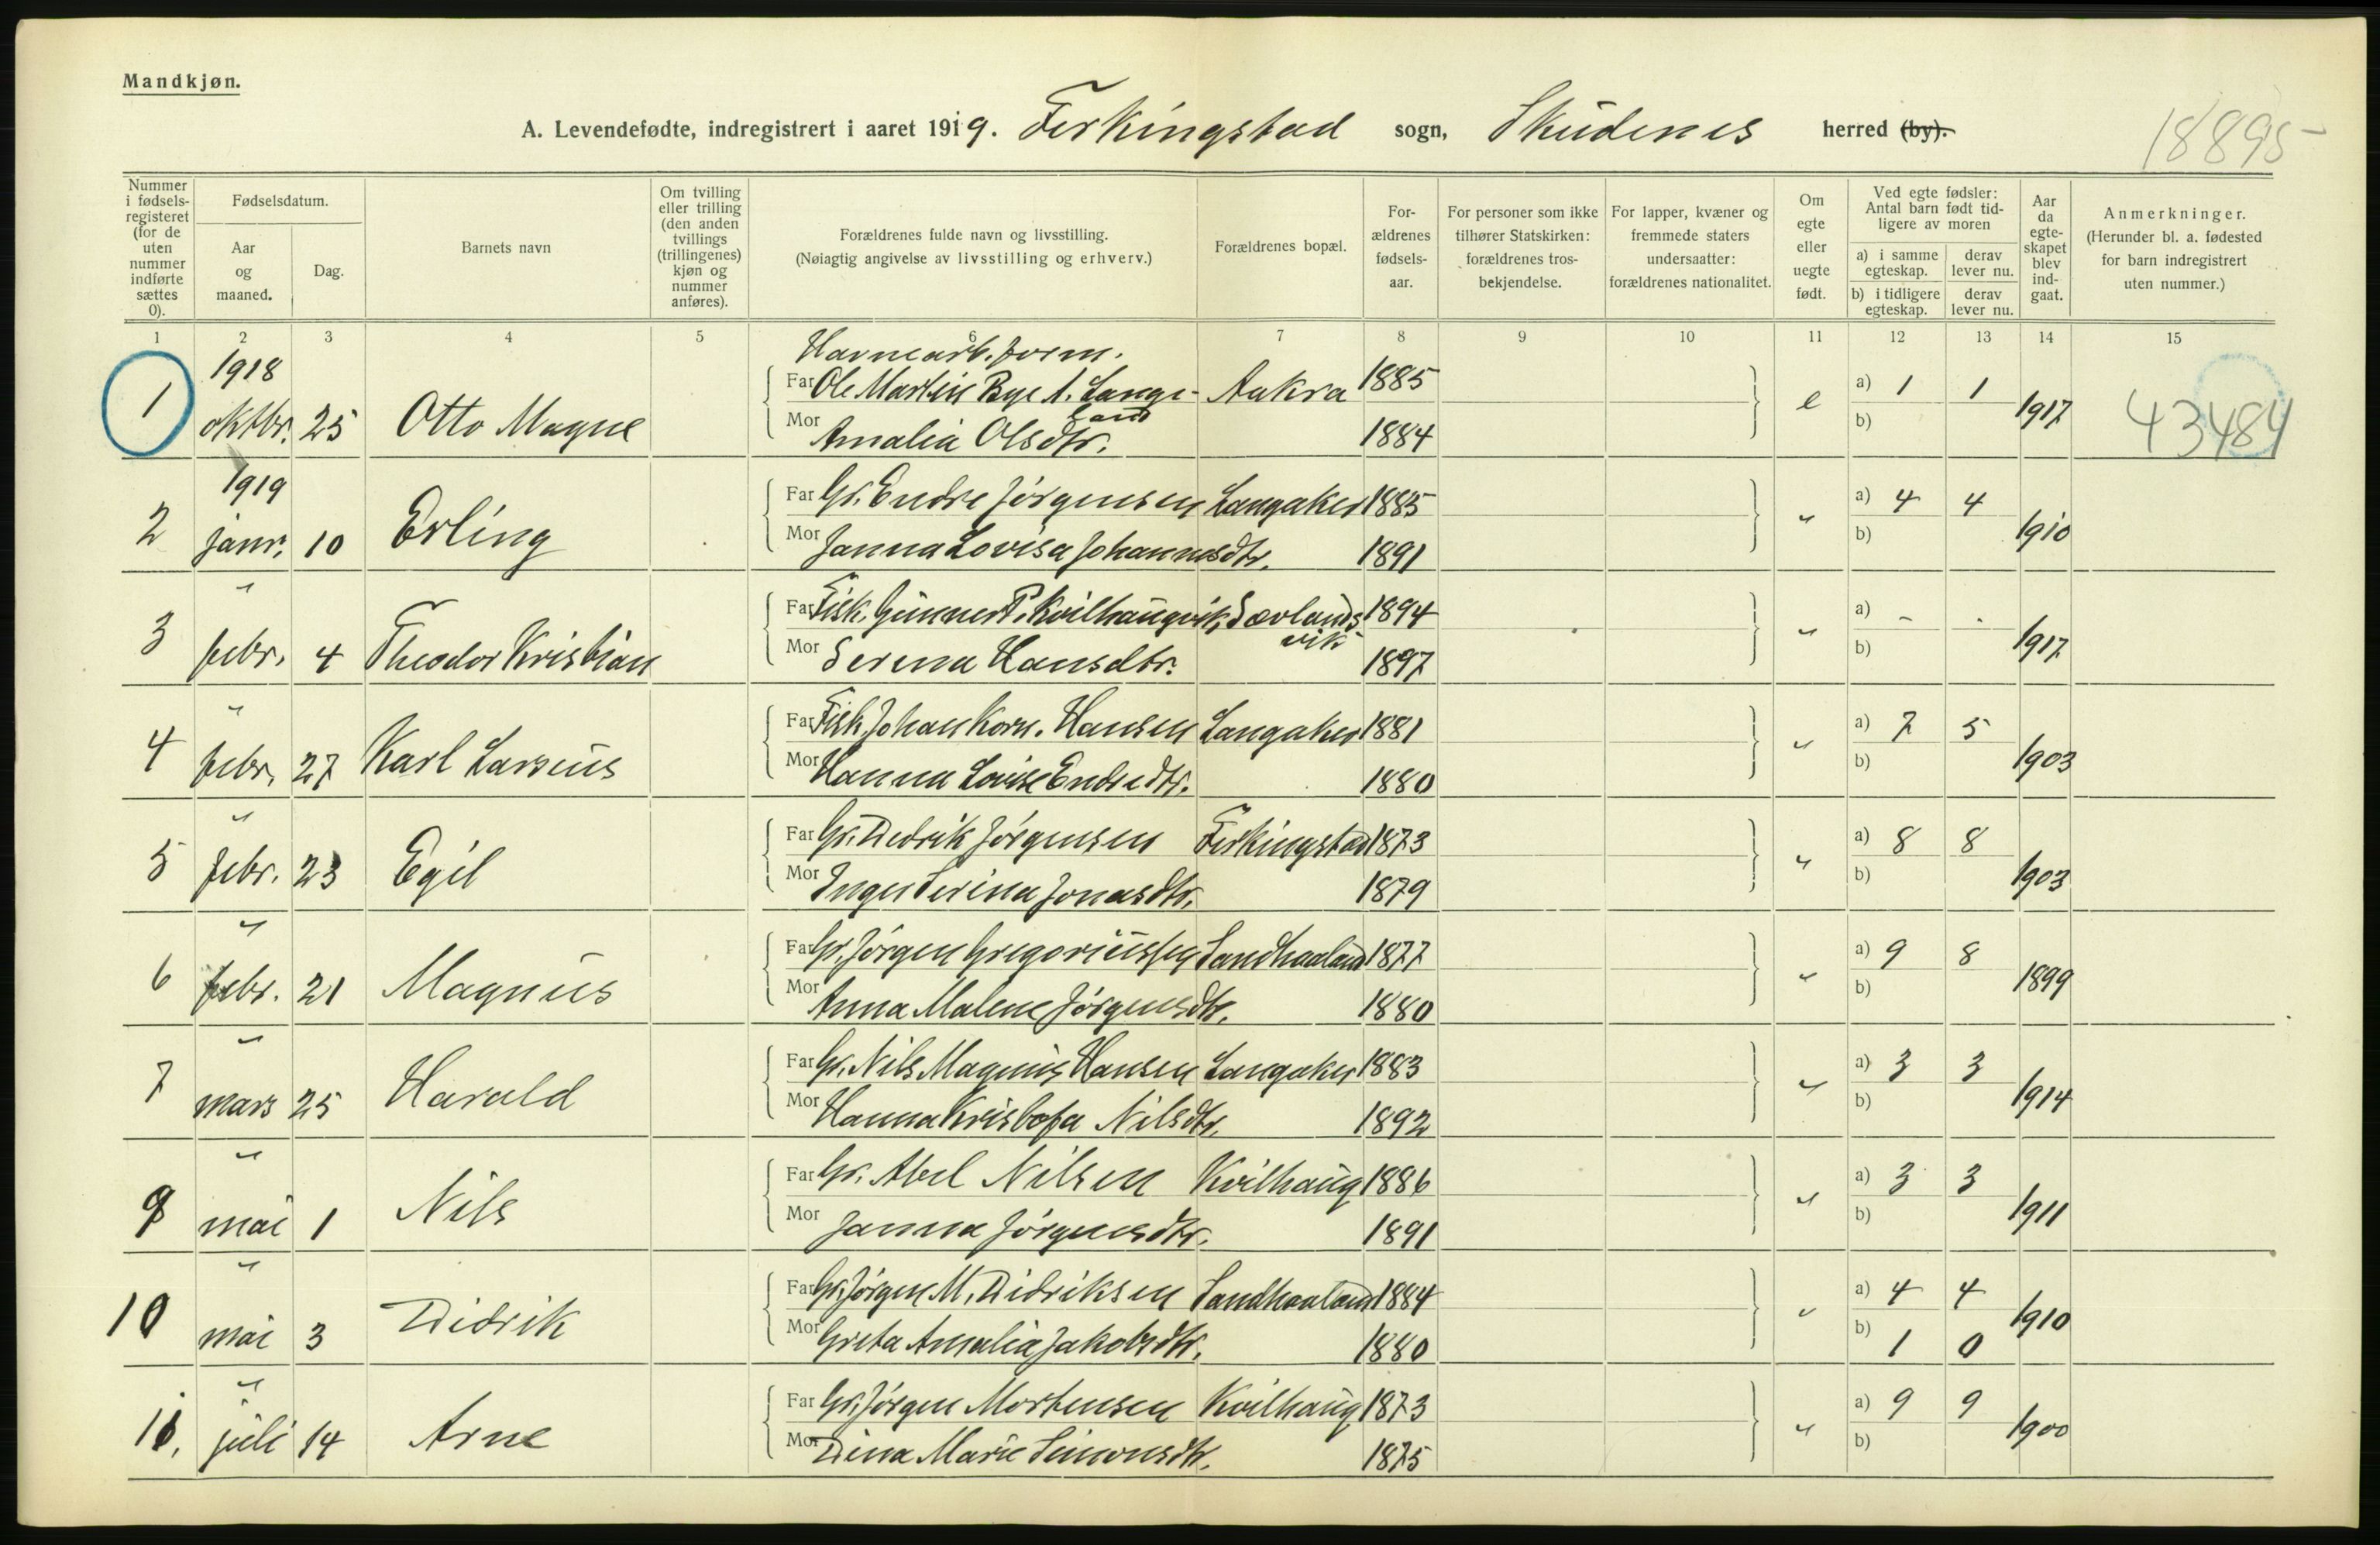 Mandkjøn.
A. Levendefødte, indregistrert i aaret 1919. Ferkingstad sogn, Skudenes herred (by).
18895
Nummer i fødsels-registeret (for de uten nummer indførte sættes 0).
Fødselsdatum.
Aar og maaned.
Dag.
Barnets navn
Om tvilling eller trilling (den anden tvillings (trillingenes) kjøn og nummer anføres).
Forældrenes fulde navn og livsstilling.
(Nøiagtig angivelse av livsstilling og erhverv.)
Forældrenes bopæl.
For-ældrenes fødsels-aar.
For personer som ikke tilhører Statskirken: forældrenes tros-bekjendelse.
For lapper, kvæner og fremmede staters undersaatter: forældrenes nationalitet.
Om egte eller uegte født.
Ved egte fødsler: Antal barn født tid-ligere av moren
a) i samme egteskap.
derav lever nu.
b) i tidligere egteskap.
derav lever nu.
Aar da egte-skapet blev ind-gaat.
Anmerkninger.
(Herunder bl. a. fødested for barn indregistrert uten nummer.)
1 2 3 4 5 6 7 8 9 10 11 12 13 14 15
Havnearb.form.
1 1918 oktbr. 25 Otto Magne Far Ole Martin Bye A. Lange- Aakra 1885 e a) 1 1 1917 43484
land
Mor Amalia Olsdtr. 1884 b)
2 1919 janr. 10 Erling Far Gr. Endre Jørgensen Langaker 1885 " a) 4 4 1910
Mor Janna Lovisa Johannesdtr. 1891 b)
3 " febr. 4 Theodor Kristian Far Fisk. Gunner P. Kvilhaugvik, Sævlands 1894 " a) - - 1917
vik
Mor Serena Hansdtr. 1897 b)
4 " febr. 27 Karl Larsius Far Fisk. Johan Korn. Hansen Langaker 1881 " a) 7 5 1903
Mor Hanna Lovise Endredtr. 1880 b)
5 " febr. 23 Egil Far Gr. Diedrik Jørgensen Ferkingstad 1873 " a) 8 8 1903
Mor Inger Serina Jonasdtr. 1879 b)
6 " febr. 21 Magnus Far Gr. Jørgen Gregoriussen Sandhaaland 1877 " a) 9 8 1899
Mor Anna Malene Jørgensdtr. 1880 b)
7 " mars 25 Harald Far Gr. Nils Magnus Hansen Langaker 1883 " a) 3 3 1914
Mor Hanna Kristofa Nilsdtr. 1892 b)
9 " mai 1 Nils Far Gr. Abel Nilsen Kvilhaug 1886 " a) 3 3 1911
Mor Janna Jørgensdtr. 1891 b)
10 " mai 3 Didrik Far Gr. Jørgen M. Didriksen Sandhaaland 1884 " a) 4 4 1910
Mor Greta Amalia Jakobsdtr. 1880 b) 1 0
11. " juli 14 Arne Far Gr. Jørgen Mortensen Kvilhaug 1873 " a) 9 9 1900
Mor Dina Marie Simonsdtr. 1875 b)